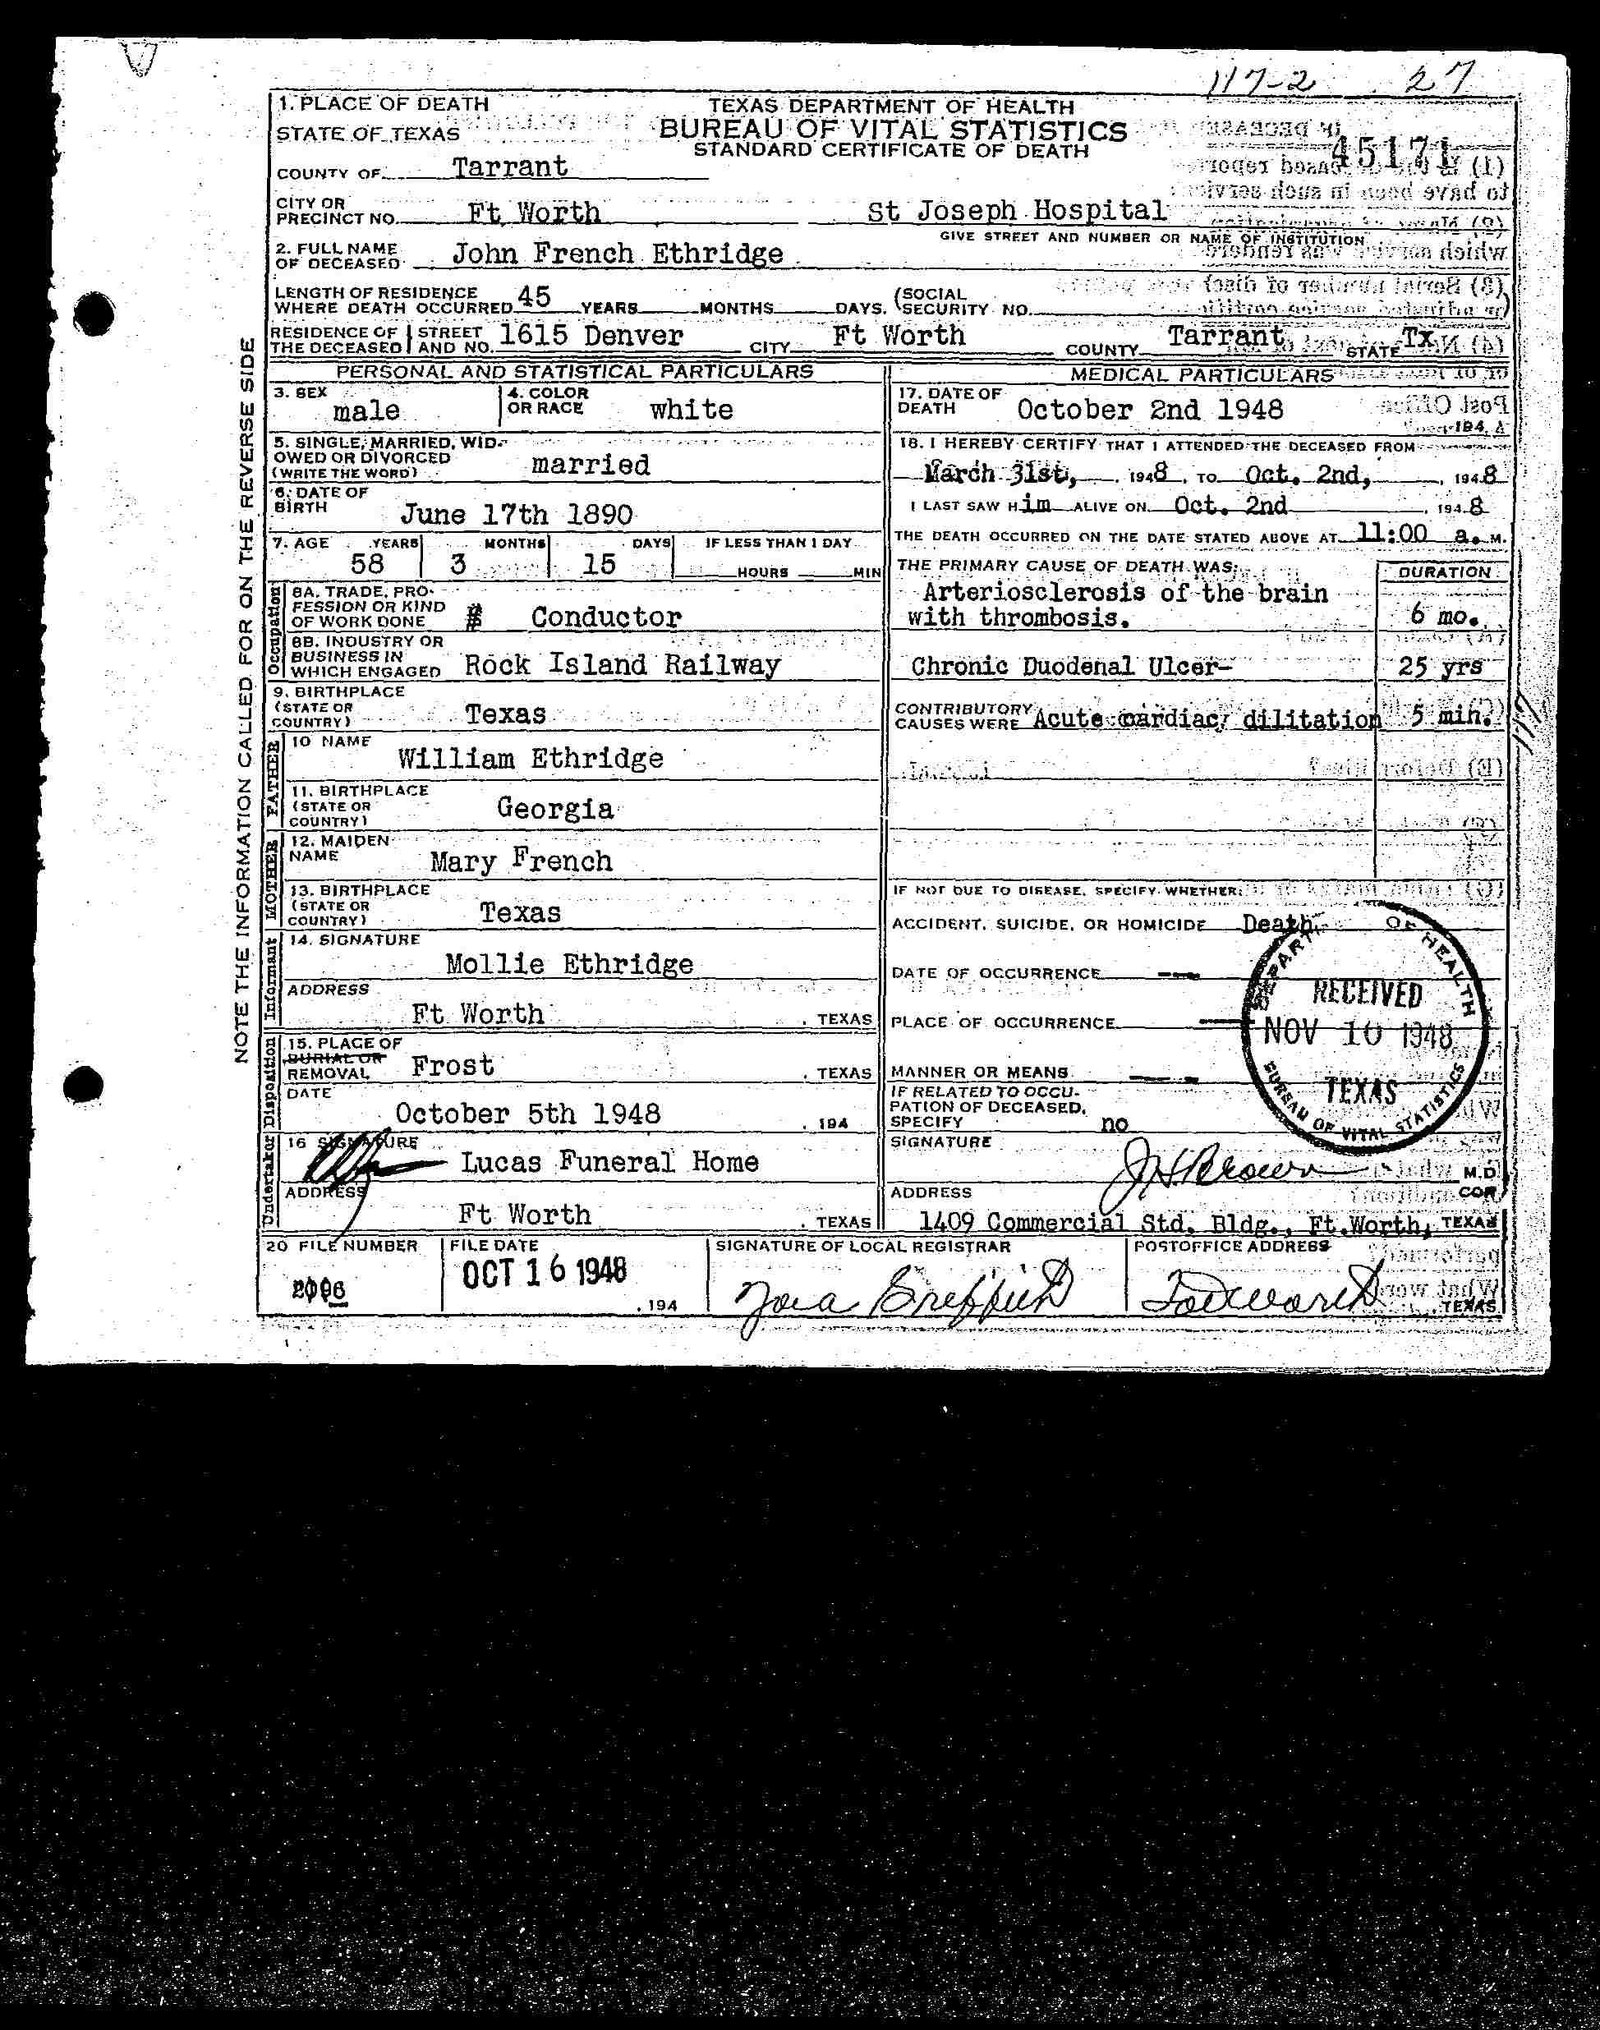 117-2 27
1. PLACE OF DEATH
STATE OF TEXAS
TEXAS DEPARTMENT OF HEALTH
BUREAU OF VITAL STATISTICS
STANDARD CERTIFICATE OF DEATH
45171
COUNTY OF Tarrant
CITY OR PRECINCT NO. Ft Worth St Joseph Hospital
GIVE STREET AND NUMBER OR NAME OF INSTITUTION
2. FULL NAME OF DECEASED John French Ethridge
LENGTH OF RESIDENCE WHERE DEATH OCCURRED 45 YEARS MONTHS DAYS. (SOCIAL SECURITY NO.
RESIDENCE OF THE DECEASED STREET AND NO. 1615 Denver CITY Ft Worth COUNTY Tarrant STATE Tx
NOTE THE INFORMATION CALLED FOR ON THE REVERSE SIDE
PERSONAL AND STATISTICAL PARTICULARS
3. SEX male
4. COLOR OR RACE white
5. SINGLE, MARRIED, WIDOWED OR DIVORCED (WRITE THE WORD) married
6. DATE OF BIRTH June 17th 1890
7. AGE YEARS MONTHS DAYS IF LESS THAN 1 DAY
58 3 15 HOURS MIN
Occupation
8A. TRADE, PROFESSION OR KIND OF WORK DONE Conductor
8B. INDUSTRY OR BUSINESS IN WHICH ENGAGED Rock Island Railway
9. BIRTHPLACE (STATE OR COUNTRY) Texas
FATHER
10 NAME William Ethridge
11. BIRTHPLACE (STATE OR COUNTRY) Georgia
MOTHER
12. MAIDEN NAME Mary French
13. BIRTHPLACE (STATE OR COUNTRY) Texas
Informant
14. SIGNATURE Mollie Ethridge
ADDRESS Ft Worth , TEXAS
Disposition
15. PLACE OF BURIAL OR REMOVAL Frost , TEXAS
DATE October 5th 1948 , 194
Undertaker
16 SIGNATURE Lucas Funeral Home
ADDRESS Ft Worth , TEXAS
MEDICAL PARTICULARS
17. DATE OF DEATH October 2nd 1948 194
18. I HEREBY CERTIFY THAT I ATTENDED THE DECEASED FROM
March 31st, 1948, TO Oct. 2nd, , 1948
I LAST SAW Him ALIVE ON Oct. 2nd , 1948
THE DEATH OCCURRED ON THE DATE STATED ABOVE AT 11:00 a. M.
THE PRIMARY CAUSE OF DEATH WAS: DURATION
Arteriosclerosis of the brain
with thrombosis. 6 mo.
Chronic Duodenal Ulcer- 25 yrs
CONTRIBUTORY CAUSES WERE Acute cardiac dilitation 5 min.
IF NOT DUE TO DISEASE, SPECIFY WHETHER:
ACCIDENT, SUICIDE, OR HOMICIDE Death
DATE OF OCCURRENCE ---
PLACE OF OCCURRENCE
MANNER OR MEANS
IF RELATED TO OCCUPATION OF DECEASED, SPECIFY no
SIGNATURE J H Brown M.D.
ADDRESS COR
1409 Commercial Std. Bldg., Ft.Worth, TEXAS
OF HEALTH
RECEIVED
NOV 10 1948
TEXAS
BUREAU OF VITAL STATISTICS
20 FILE NUMBER
FILE DATE OCT 16 1948 , 194
SIGNATURE OF LOCAL REGISTRAR
POSTOFFICE ADDRESS Fort Worth TEXAS